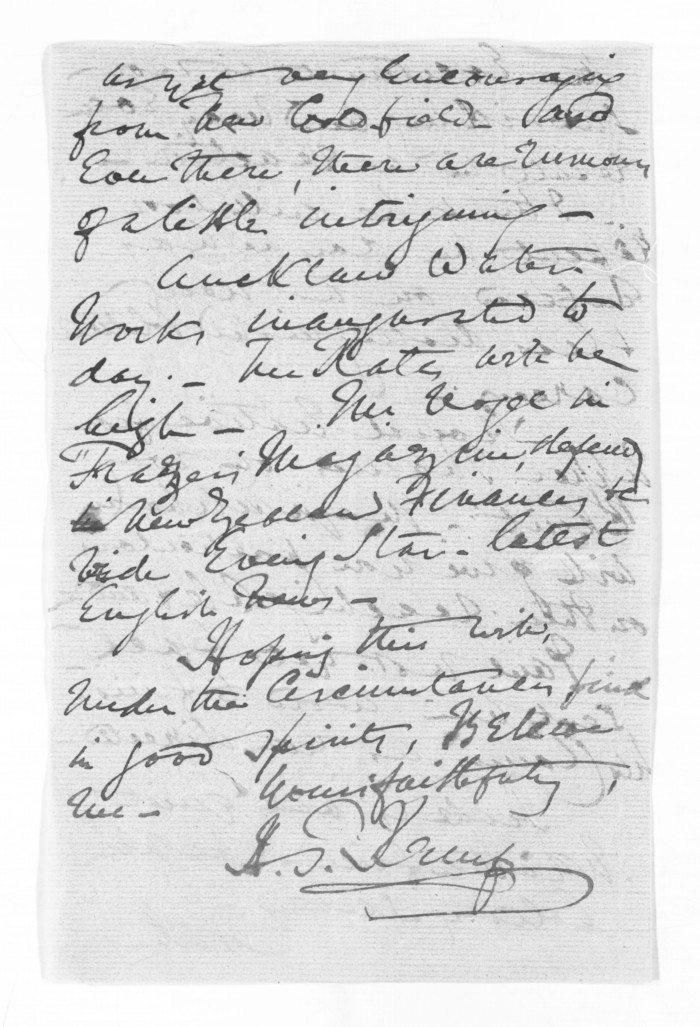 as yet very Encouraging
from New Goldfield and
Even there, there are rumours
of a little intriguing –
Auckland Water
Works inaugurated to
day. – The Rates will be
high – Mr Vogel in
"Frazer's Magazine, defends
New Zealand Finances &c
Vide Evening Star – latest
English News –
Hoping this will,
Under the Circumstances find
in good Spirits, Believe
me – Yours faithfully,
H. S.